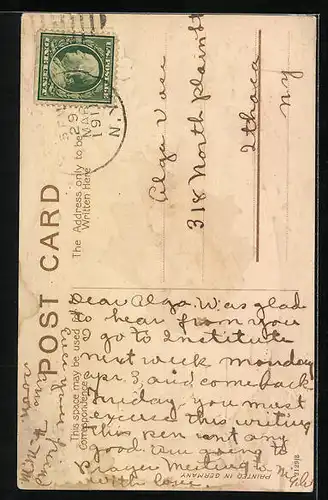 POST CARD
The Address only to be
Written Here
This space may be used for
Correspondence
U.S. POSTAGE
MAR
29
191
N.Y.
Alga Vose
318 North plain st
Ithaca
N.Y.
Dear Alga. Was glad
to hear from you
I go to Institute
next week monday
apr. 3, and come back
Friday. you must
excuse this writing
this pen isnt any
good. am going to
Prayer Meeting
with love
PRINTED IN GERMANY